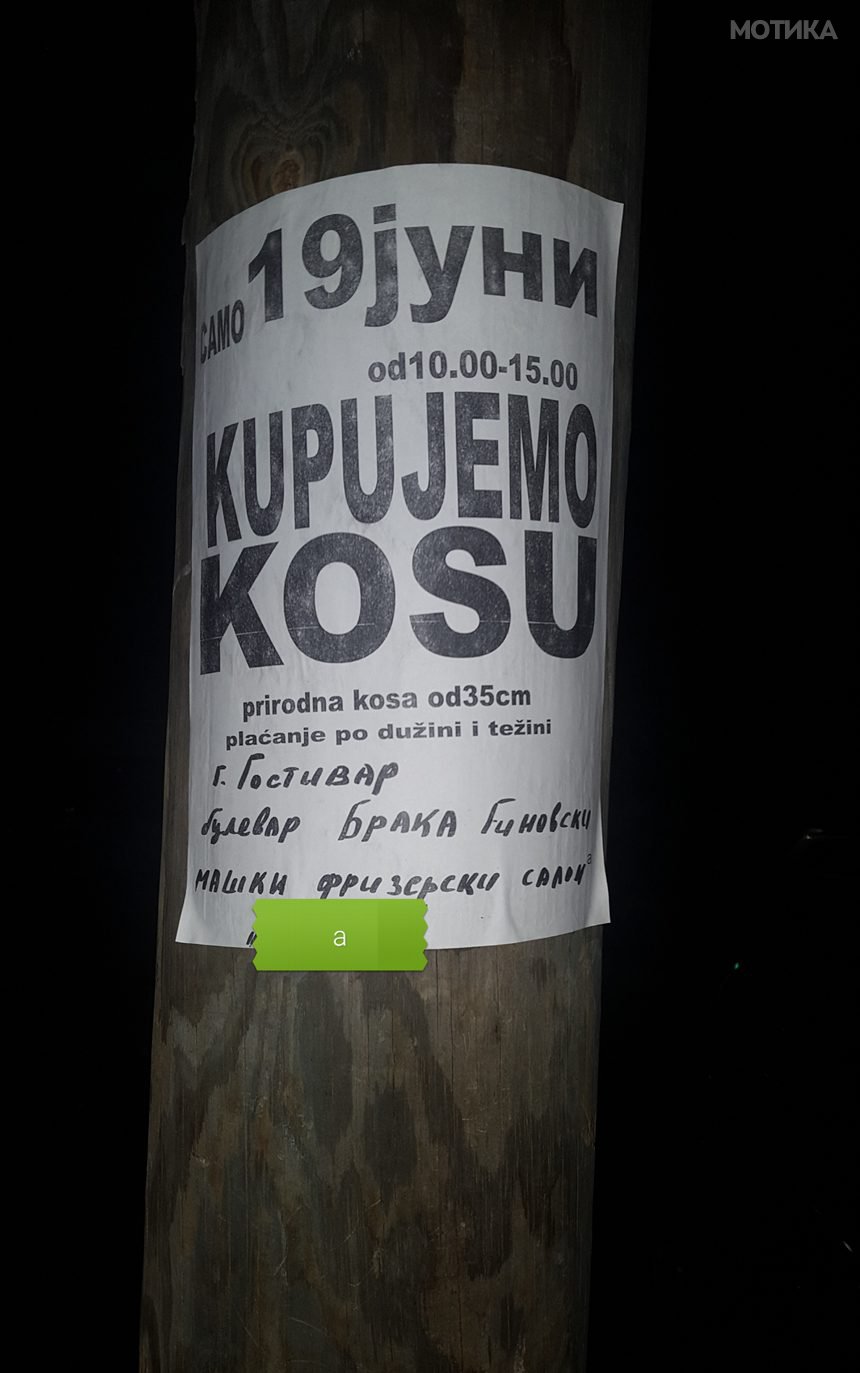 МОТИКА
19јуни
САМО
od10.00-15.00
KUPUJEMO
KOSU
prirodna kosa od35cm
plaćanje po dužini i težini
г. Гостивар
булевар БРАКА Гиновски
МАШКИ фризерски САЛОН
а
а